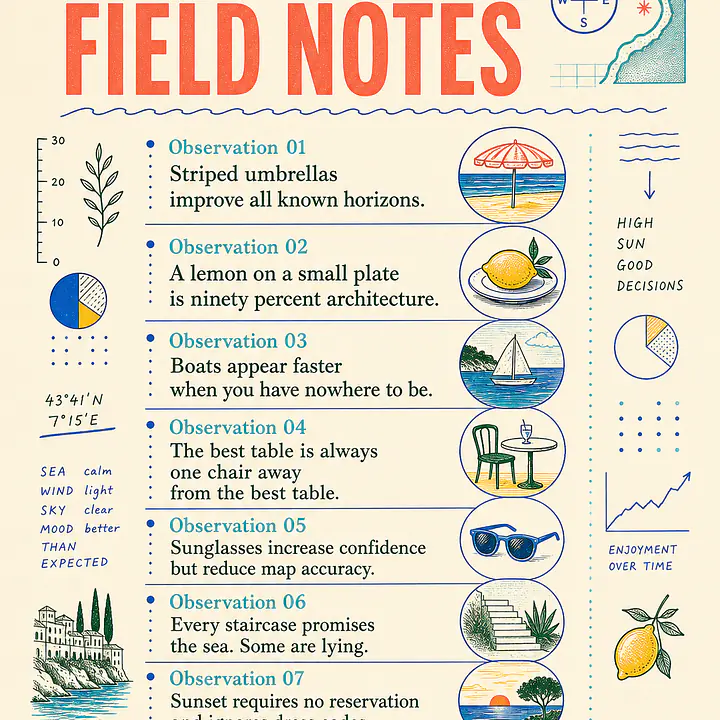 W E
S
FIELD NOTES
30
20
10
0
43°41'N
7°15'E
SEA calm
WIND light
SKY clear
MOOD better
THAN
EXPECTED
Observation 01
Striped umbrellas
improve all known horizons.
Observation 02
A lemon on a small plate
is ninety percent architecture.
Observation 03
Boats appear faster
when you have nowhere to be.
Observation 04
The best table is always
one chair away
from the best table.
Observation 05
Sunglasses increase confidence
but reduce map accuracy.
Observation 06
Every staircase promises
the sea. Some are lying.
Observation 07
Sunset requires no reservation
HIGH
SUN
GOOD
DECISIONS
ENJOYMENT
OVER TIME